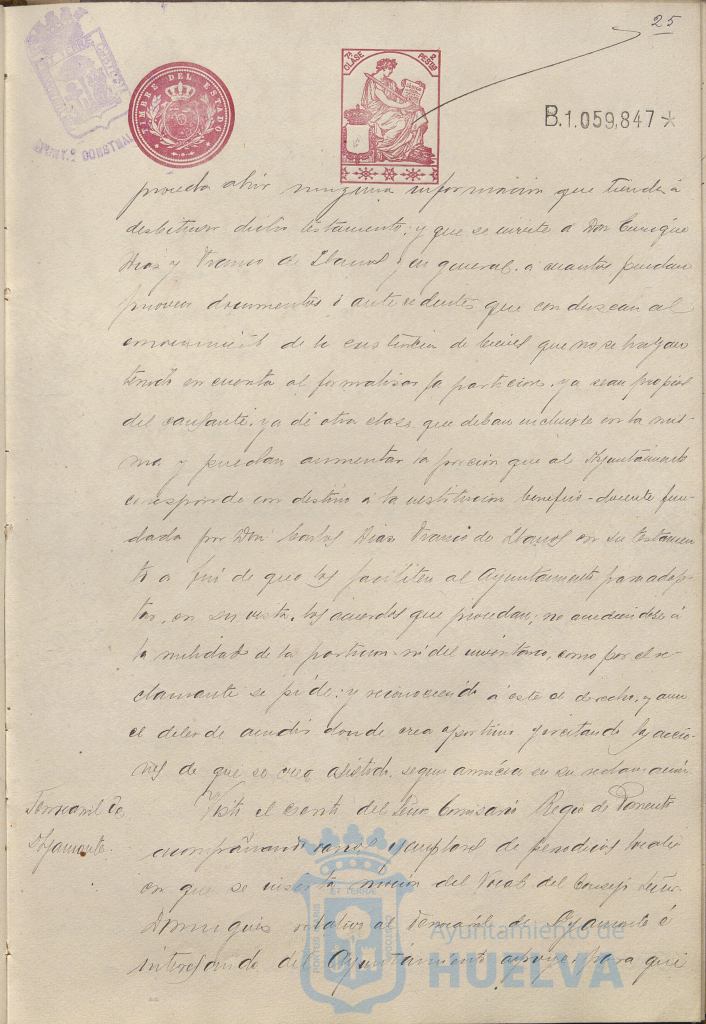 25
TIMBRE DEL ESTADO
7ª CLASE 2 PESTAS
B.1.059,847
proceda abrir ninguna información que tienda á
desvirtuar dicho testamento; y que se invite á Don Enrique
Diaz y Franco de Llanos y en general, á cuantos puedan
proveer documentos ó antecedentes que conduzcan al
conocimiento de la existencia de bienes que no se hayan
tenido en cuenta al formalizar la particion, ya sean propios
del causante, ya de otra clase, que deban incluirse en la mis-
ma y puedan aumentar la porcion que al Ayuntamiento
corresponde con destino á la institucion benéfico-docente fun-
dada por Don Carlos Diaz Franco de Llanos en su testamen-
to a fin de que los faciliten al Ayuntamiento para adop-
tar, en su vista, los acuerdos que procedan; no accediendose á
la nulidad de la particion ni del inventario, como por el re-
clamante se pide; y reconociendo á este el derecho, y aun
el deber de acudir donde crea oportuno ejercitando las accio-
nes de que se crea asistido, segun anuncia en su reclamación.
Ferrocarril de
Ayamonte.
Visto el escrito del Señor Comisario Regio de Fomento
acompañando varios ejemplares de periodicos locales
en que se inserta mocion del Vocal del Consejo Señor
Dominguez relativa al Ferrocarril de Ayamonte é
interesando del Ayuntamiento apoye para que
Ayuntamiento de
HUELVA